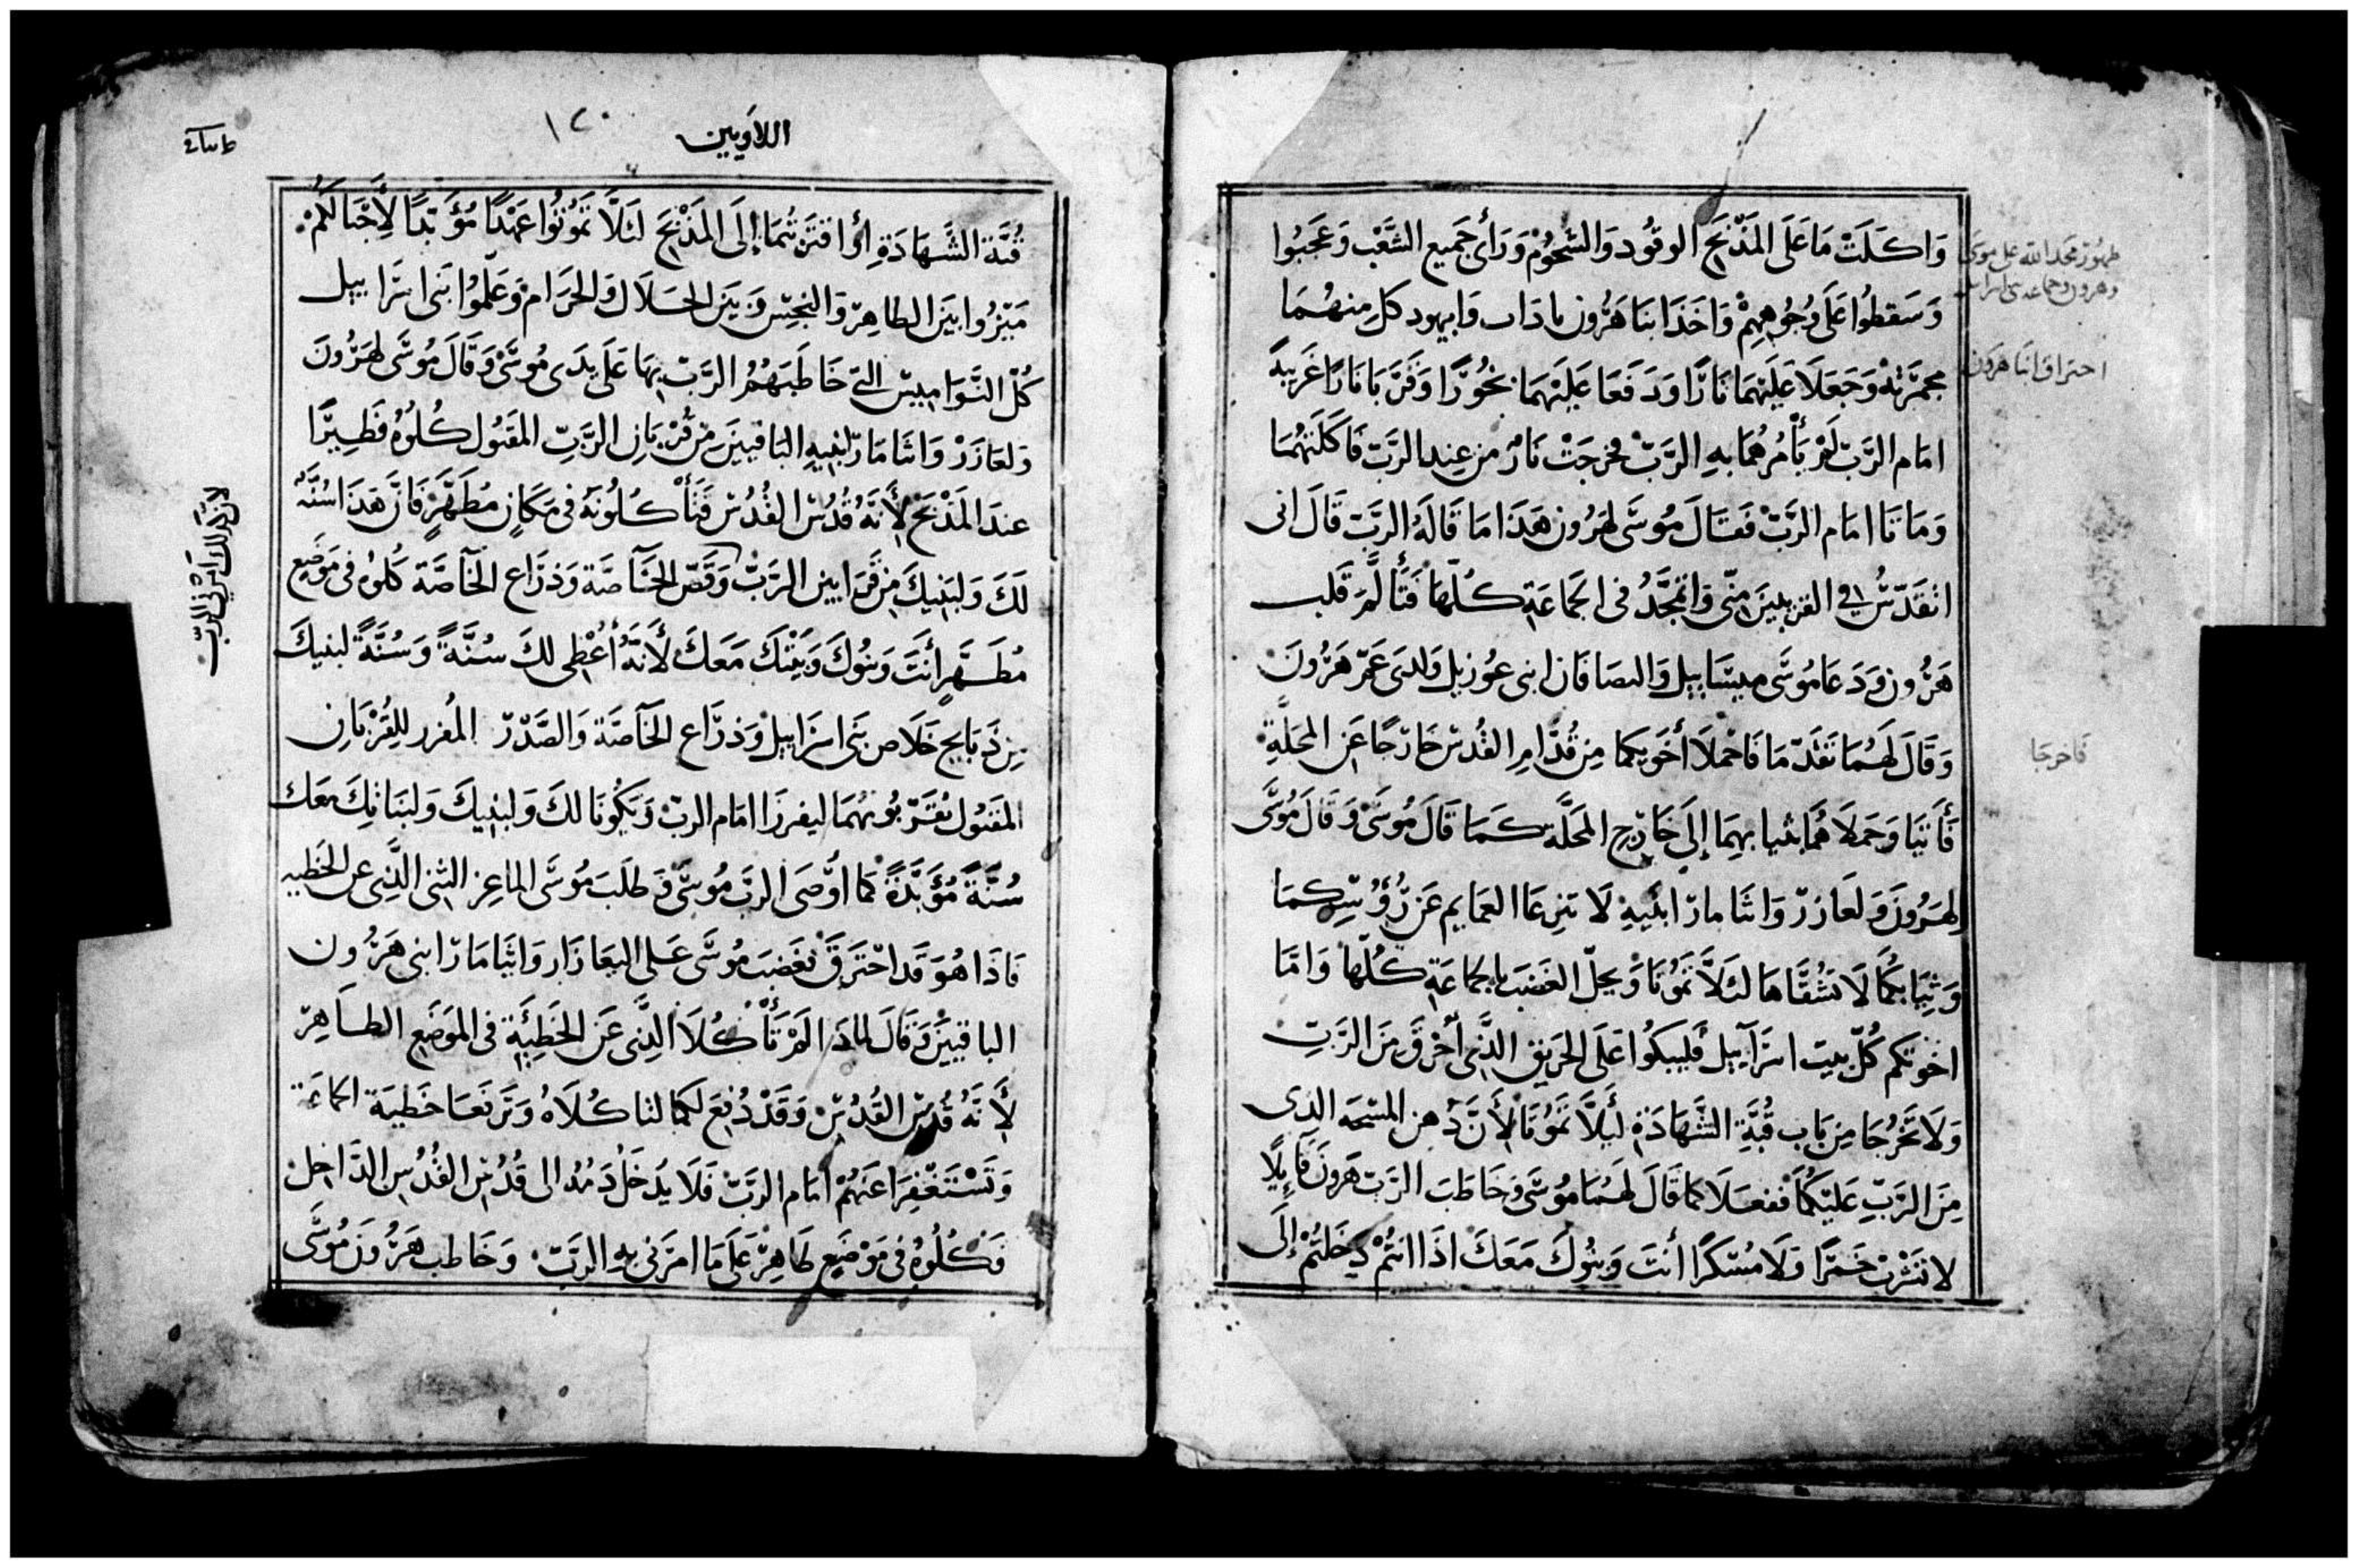 وَاكَلَتْ مَا عَلَى المَذْبَحِ الوقُود وَالشُحُوم وَرَأى جَميع الشَّعْب وَعَجَبُوا
وَسَقطُوا عَلَى وُجُوهِهِمْ وَاخَذَا بنَا هَرُون ناداب وَابيهود كل مِنهُمَا
مجمَرَته وَجَعَلَا عَلَيهمَا نَارًا وَدَفَعَا عَلَيْهمَا بخُورًا وَقَرَبَا نَارًا غَرِيبَةً
امَام الرَّبّ لَمْ يَأْمُرْهُمَا بهِ الرَّبّ فخرجَتْ نَارٌ من عِند الرَّبّ فَاكَلَتهُمَا
وَمَاتَا امَام الرَّبّ فَقَالَ مُوسَى لهَرُون هَذَا مَا قَالَهُ الرَّبّ قَالَ انى
اتقَدّسُ فِى القريبِينَ مِنّى وَاتمجَّدُ فى الجَمَاعَةِ كُلّهَا فَتَألَّمَ قَلب
هَرُون وَدَعَا مُوسَى ميسَاييل وَالصَافَان ابنى عوزيل وَلدَى عَمّ هَرُونَ
وَقَالَ لَهُمَا تقَدّمَا فَاحْملَا أخَوَيكما مِن قُدَّامِ القُدس خَارجًا عَن المَحَلَّةِ
فَأتيَا وَحَمَلَاهُمَا بثيابهمَا إلَى خَارج المَحَلَّة كَمَا قَالَ مُوسَى وَقَالَ مُوسَى
لهَرُونَ وَلعَازر وَاثَامار ابنَيهِ لَا تنزعَا العمَايم عَن رُؤسِكمَا
وَثِيَابكُمَا لَا تَشُقَّاهَا لئَلَّا تَمُوتَا وَيحلّ الغَضَب بالجماعَةِ كُلّهَا وَامَّا
اخوَتكم كُلّ بيت اسرَآييل فَليبكُوا عَلَى الحَريق الذَّى أحْرقَ مِنَ الرَّبّ
وَلَا تَخرُجَا مِن بَاب قُبَّةِ الشَّهَادَةِ ليَلَّا تَمُوتَا لأَنَّ دُهن المسْحَه الذى
مِنَ الرَّبِّ عَليْكُمَا ففعَلَا كما قَالَ لهُمَا مُوسَى وَخَاطَبَ الرَّب هَرونَ قَايِلًا
لا تشْرَبْ خَمرًا وَلَا مُسْكرًا أنتَ وَبنُوكَ مَعَكَ اذَا انتُمْ دخلتمْ إلَى
ظهور مجد الله على موسى
وهرون وجماعة بنى اسرايل
احتراق ابنا هرون
فاخرجا
اللاويين
١٢٠
قُبَّة الشَّهَادَةِ أوْ اقتَرَبتُمَا إلَى المَذْبَحَ لئلَّا تمُوتُوا عَهْدًا مُؤَبّدًا لِأجْيَالكُمْ
مَيّزُوا بَينَ الطاهِر وَالنجِس وَبَينَ الحَلَال وَالحَرَام وَعَلّمُوا بَنى اسرَاييل
كُلّ النَوَاميس التى خَاطَبَهُمُ الرَّبّ بهَا عَلَى يدَى مُوسَى وَقَالَ مُوسَى لهَرُونَ
وَلعَازَر وَاثَامَار ابنيهِ البَاقيين مِن قُربَان الرَّبّ المقبُول كُلُوهُ فَطِيرًا
عندَ المَذْبَح لأَنَّهُ قُدُس القُدُس فتَأكُلُونَهُ فى مَكَانٍ مُطَهَّرٍ فَانَّ هَذَا سُنَّةً
لَكَ وَلبَنِيكَ مِن قرَابين الرَّبّ وَقصّ الخَاصَّة وَذرَاع الخَاصَّة كُلوُه فى مَوضِع
مُطَهَّرٍ أَنتَ وَبنُوكَ وَبَيتكَ مَعَكَ لأَنَّهُ أُعْطِى لكَ سُنَّةً وَسُنَّةً لبنيكَ
مِن ذَبَايح خَلَاص بَنى اسرَاييل وَذرَاع الخَاصَّة وَالصَّدر المُفرر للِقُرْبَان
المقبُول تقَرّبُونهُمَا ليفرزَا امَام الرب وَيَكُونَا لكَ وَلبنِيكَ وَلبنَاتِكَ معَك
سُنَّةً مُؤَبَّدَةً كَمَا أوْصَى الربّ مُوسَى وَطَلَبَ مُوسَى الماعِز الثنى الذِّى عن الخَطيه
فَاذَا هُوَ قَد احْتَرَقَ فغَضبَ مُوسَى عَلى اليعَازَار وَاثَامَار ابنى هَرُون
الباقيينَ وَقَالَ لماذَا لَمْ تَأكُلَا الذِّى عَن الخَطِيئَةِ فى الموَضَع الطَاهِر
لأَنَّهُ قُدس القُدُس وَقَدْ دُفِعَ لكما لتاكُلَاهُ وَتَرفعَا خَطيَة الجماعَة
وَتَسْتَغْفِرَا عَنهُمْ امَام الربّ فَلَا يَدخُلْ دَمُه الى قُدُس القُدُس الدَّاخِل
فَكُلُوهُ فى مَوْضع طَاهِر عَلَى مَا امَرَنى به الرَّبّ وَخَاطب هَرُونَ مُوسَى
لأن كذلك أمرنى الرب